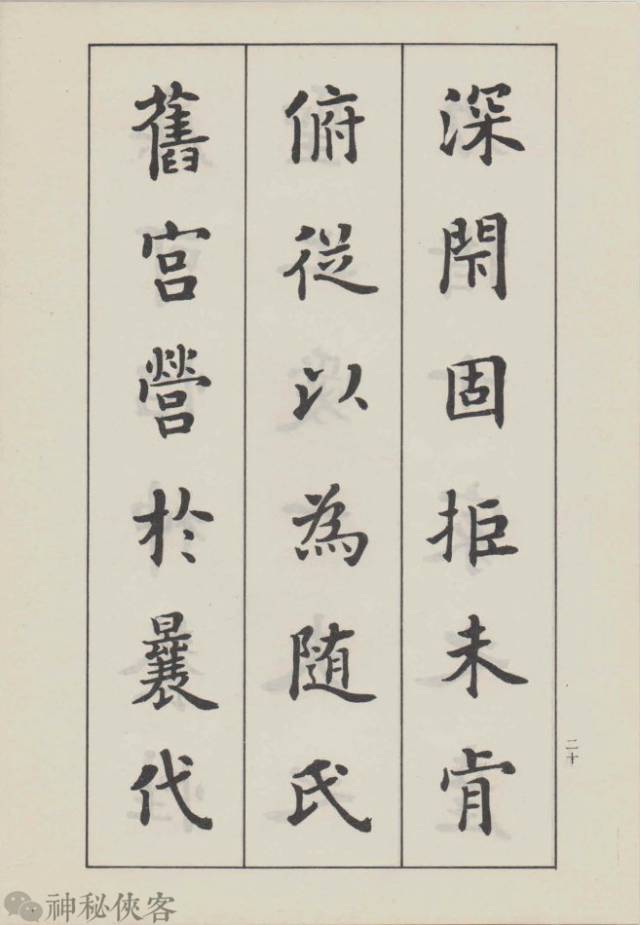 深閇固拒未肯
俯従以為随氏
舊宮營於曩代
二十
神秘俠客